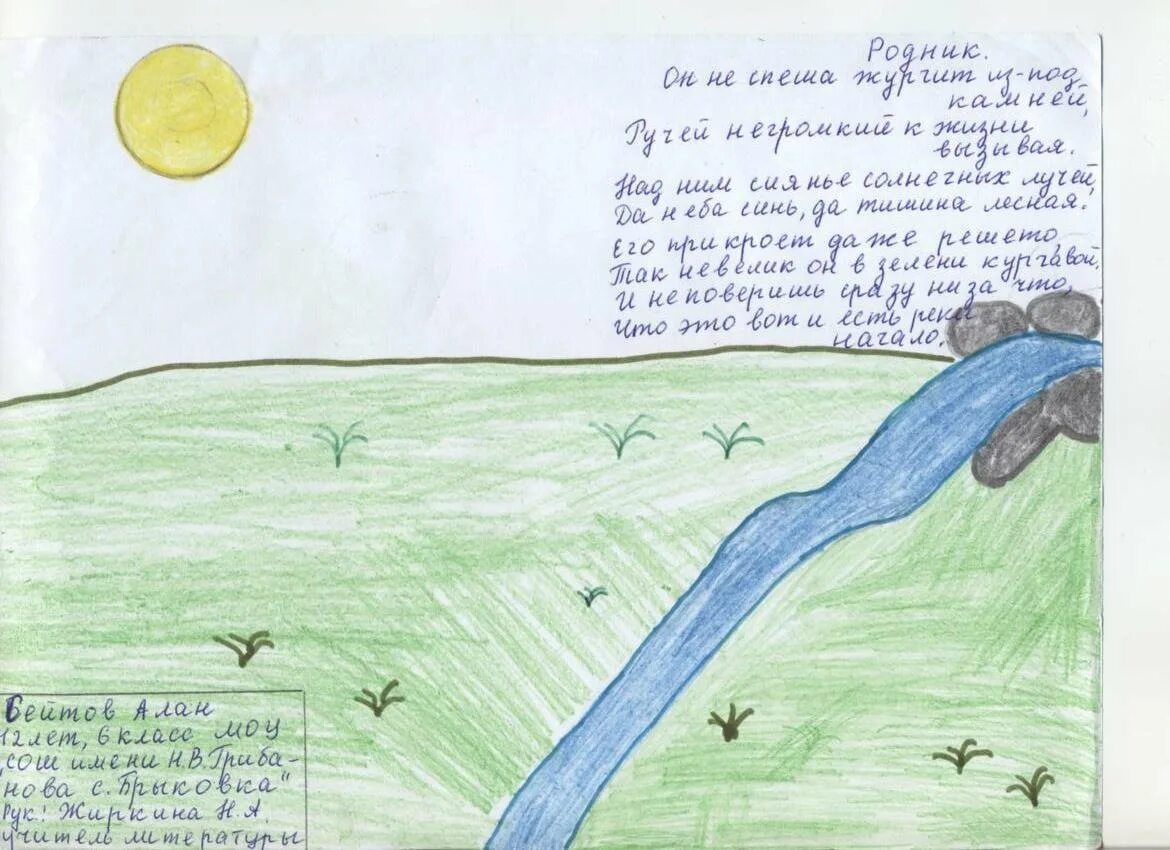 Родник.
Он не спеша журчит из-под
камней,
Ручей негромкий к жизни
вызывая.
Над ним сиянье солнечных лучей,
Да неба синь, да тишина лесная.
Его прикроет даже решето,
Так невелик он в зелени курчавой,
И не поверишь сразу ни за что,
Что это вот и есть реки
начало.
Бейтов Алан
12лет, 6 класс МОУ
„сош имени Н.В.Гриба-
нова с. Брыковка"
Рук: Жиркина Н.А.
учитель литературы